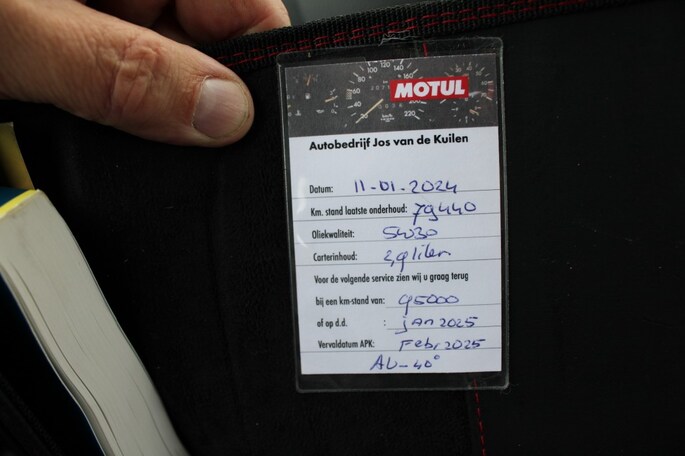 MOTUL
Autobedrijf Jos van de Kuilen
Datum: 11-01-2024
Km. stand laatste onderhoud: 79440
Oliekwaliteit: 5W30
Carterinhoud: 2,9 liter
Voor de volgende service zien wij u graag terug
bij een km-stand van: 95000
of op d.d. : jan 2025
Vervaldatum APK: Febr 2025
-40°